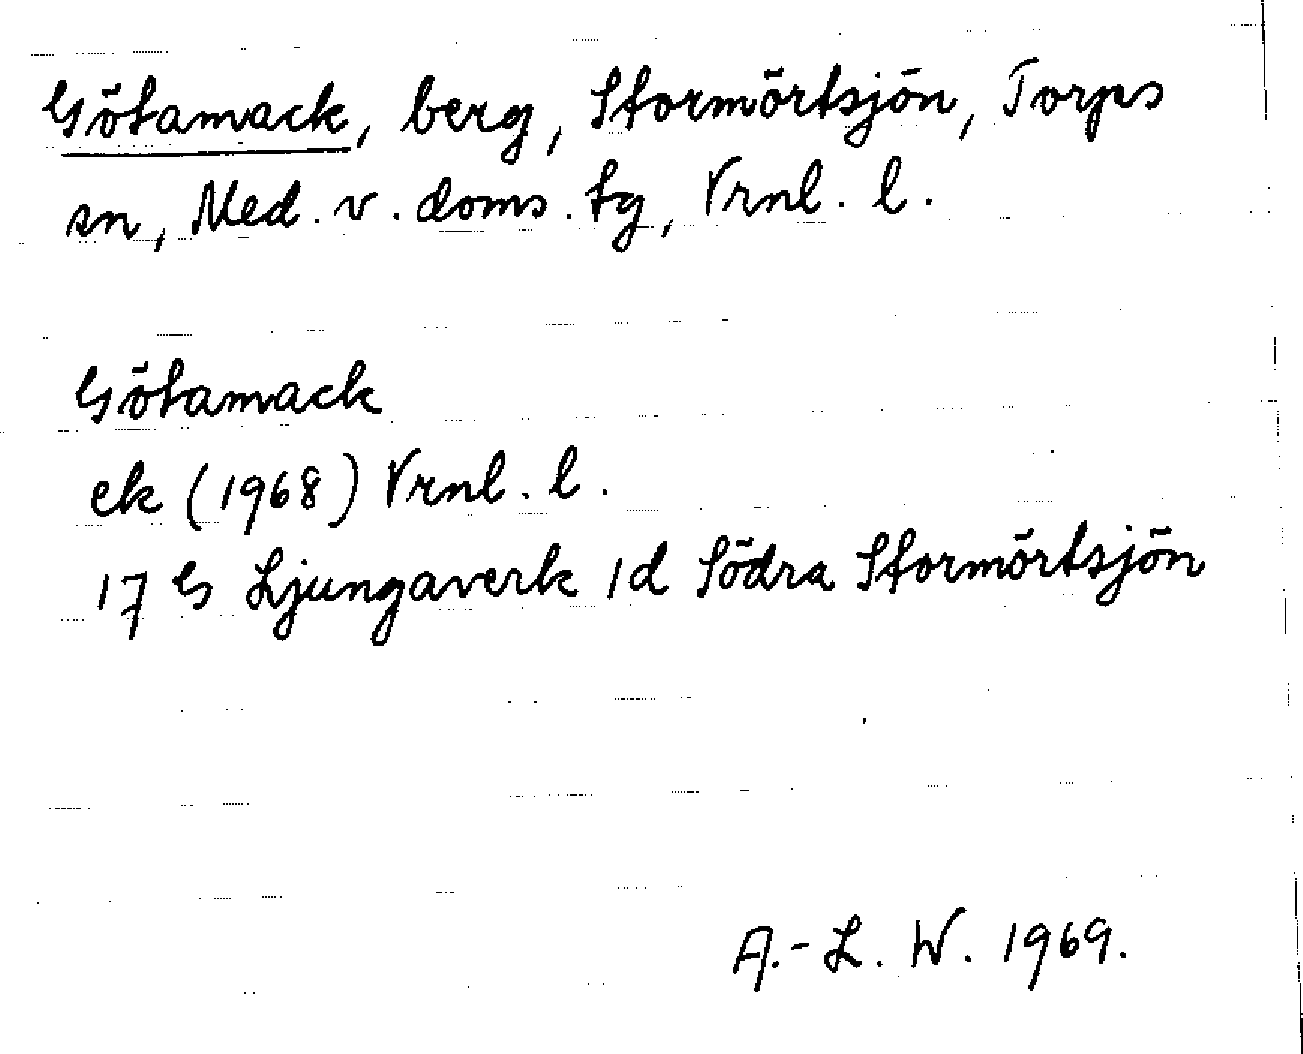 Götamack, berg, Stormörtsjön, Torps
sn, Med. v. doms. tg, Vrnl. l.
Götamack
ek (1968) Vrnl. l.
17 G Ljungaverk 1d Södra Stormörtsjön
A.-L. W. 1969.